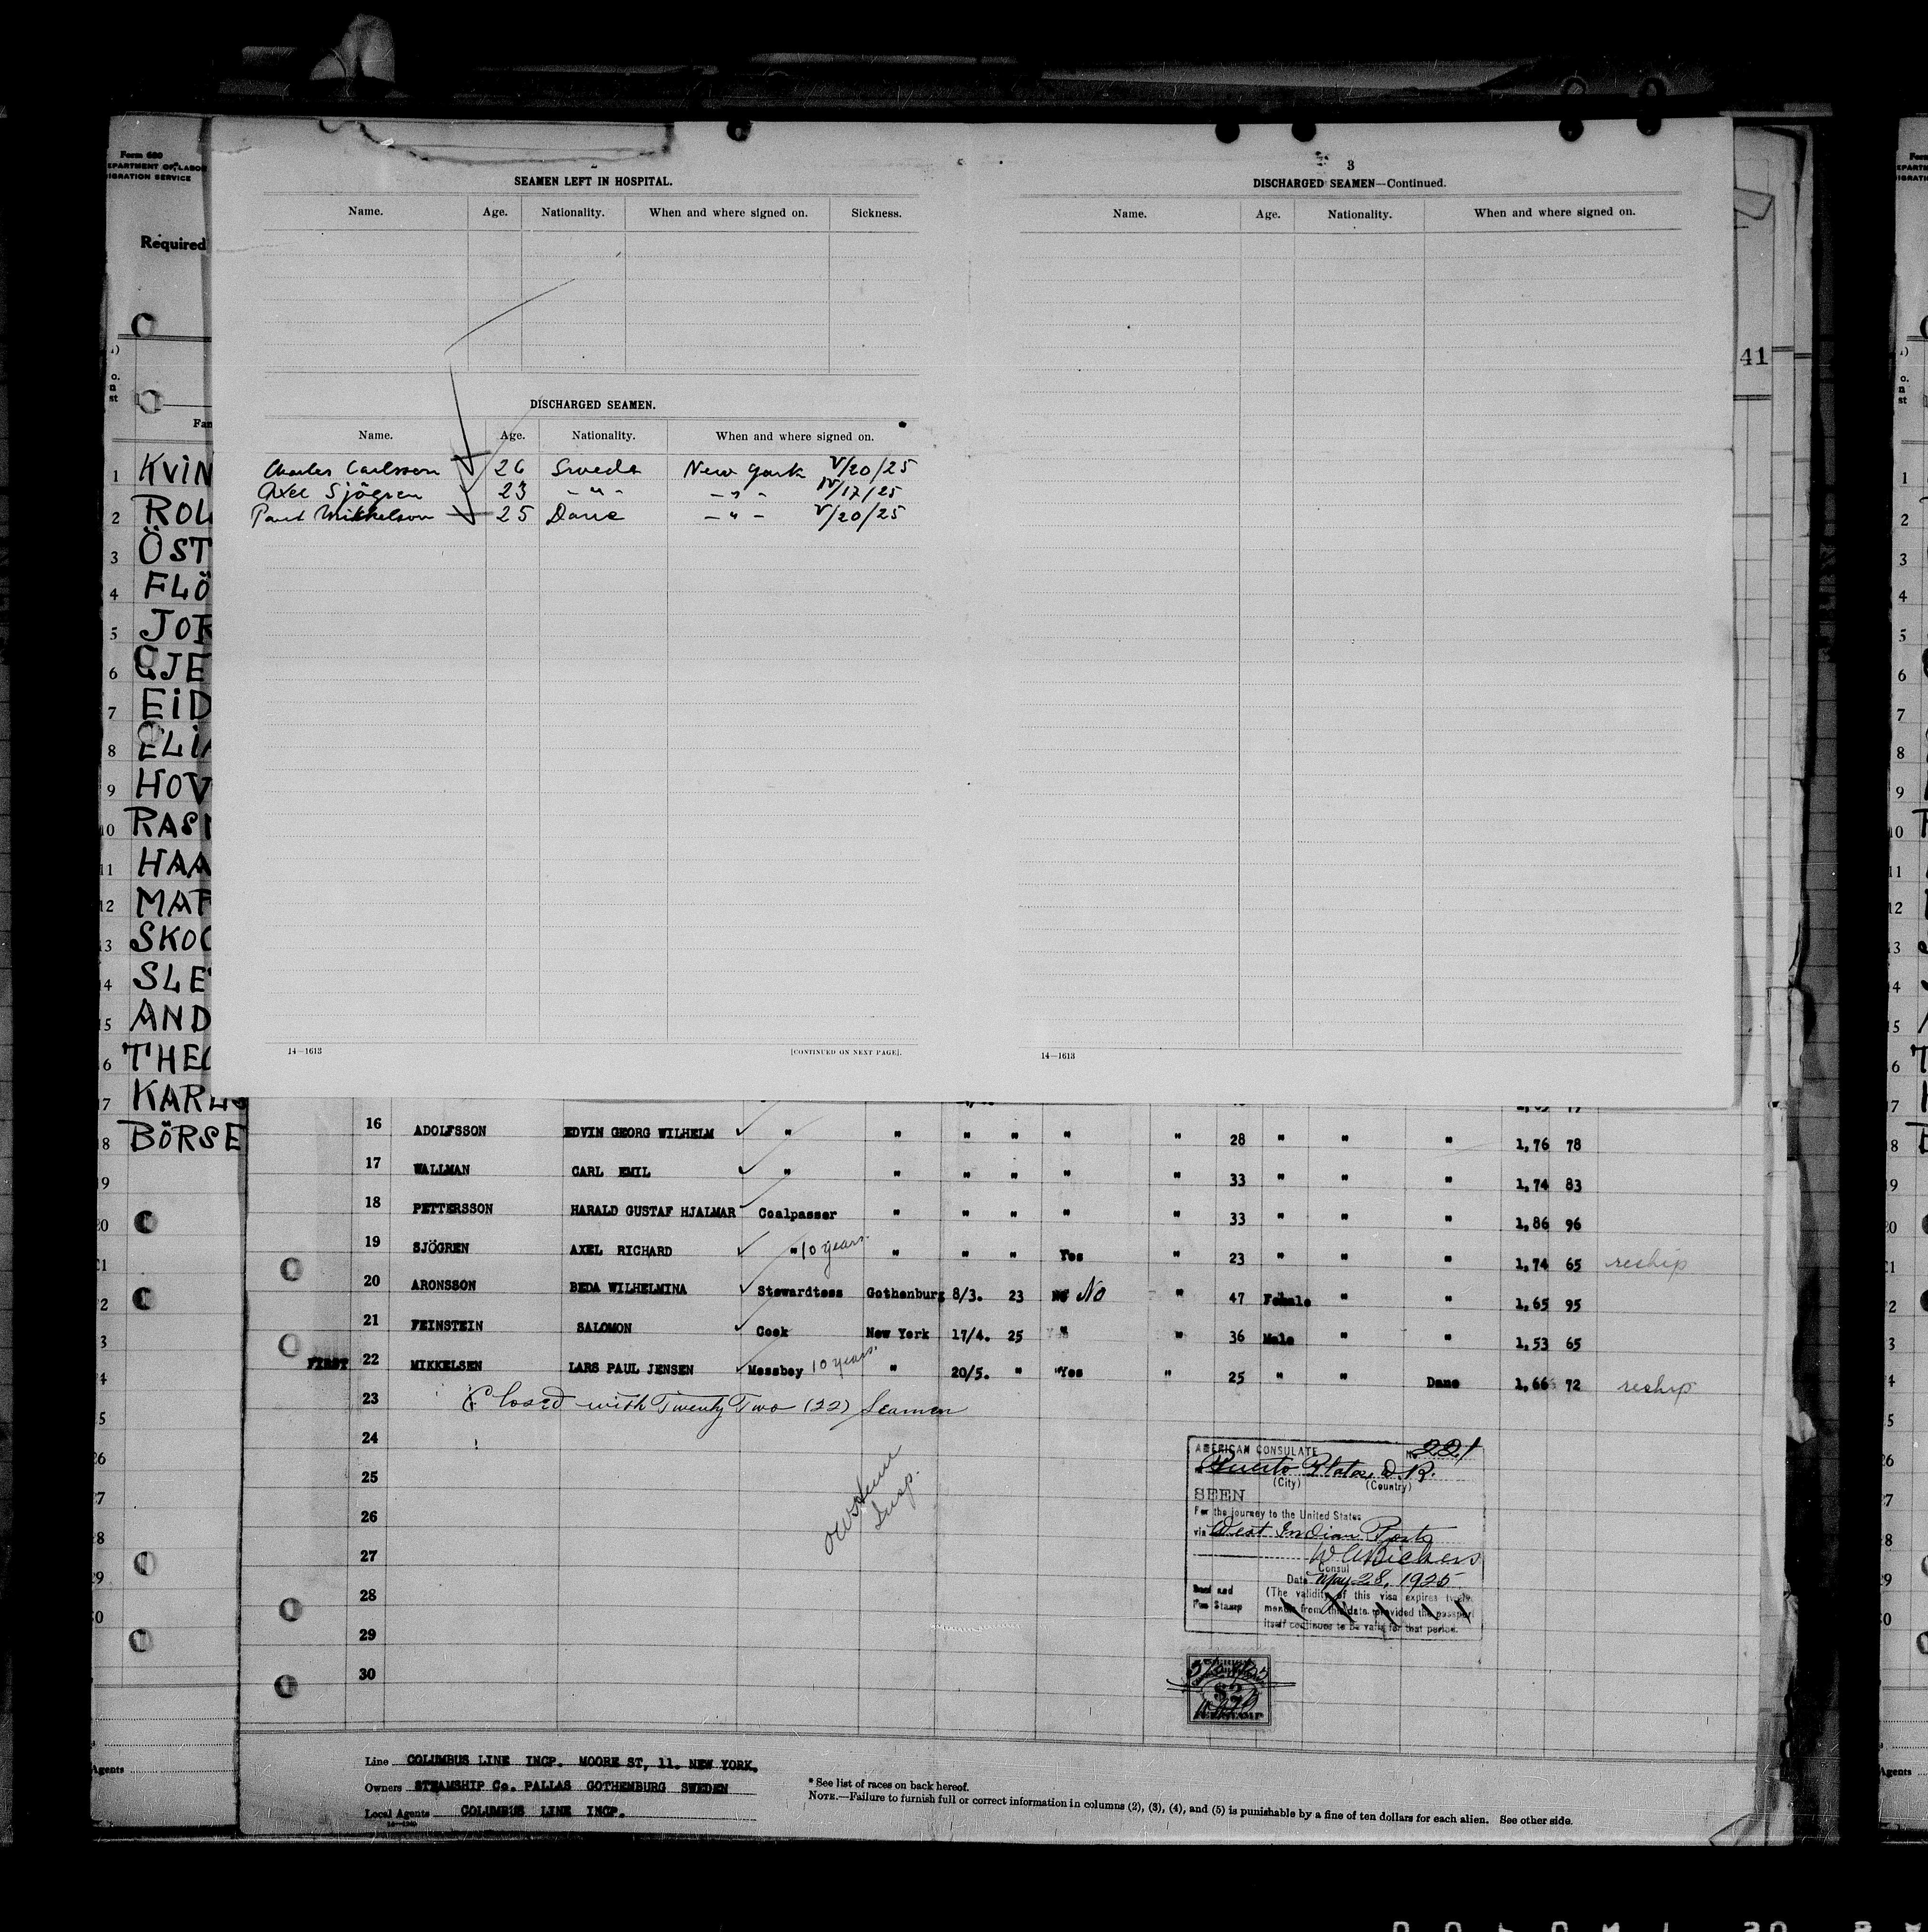 Form 680
EPARTMENT OF LABOR
IGRATION SERVICE
Required
Fan
1 KVIN
2 ROL
3 ÖST
4 FLÖ
5 JOR
6 GJE
7 EID
8 ELIA
9 HOV
10 RAS
11 HAA
12 MAT
13 SKO
14 SLE
15 AND
16 THE
17 KARL
18 BÖRSE
Agents
SEAMEN LEFT IN HOSPITAL.
Name. Age. Nationality. When and where signed on. Sickness.
DISCHARGED SEAMEN.
Name. Age. Nationality. When and where signed on.
Charles Carlsson 26 Swede New York V/20/25
Axel Sjögren 23 - " - - " - IV/17/25
Paul Mikkelson 25 Dane - " - V/20/25
14—1613 [CONTINUED ON NEXT PAGE].
3
DISCHARGED SEAMEN—Continued.
Name. Age. Nationality. When and where signed on.
14—1613
41
16 ADOLFSSON EDVIN GEORG WILHELM " " " " " " 28 " " " 1,76 78
17 WALLMAN CARL EMIL " " " " " " 33 " " " 1,74 83
18 PETTERSSON HARALD GUSTAF HJALMAR Coalpasser " " " " " 33 " " " 1,86 96
19 SJÖGREN AXEL RICHARD " 10 years. " " " Yes " 23 " " " 1,74 65 reship
20 ARONSSON BEDA WILHELMINA Stewardtess Gothenburg 8/3. 23 No " 47 Female " " 1,65 95
21 FEINSTEIN SALOMON Cook New York 17/4. 25 " " 36 Male " " 1,53 65
FIRST 22 MIKKELSEN LARS PAUL JENSEN Messboy 10 years. " 20/5. " "Yes " 25 " " Dane 1,66 72 reship
23 Closed with Twenty Two (22) Seamen
24
25
26
27
28
29
30
Insp.
AMERICAN CONSULATE No. 221
Puerto Plata, D.R.
(City) (Country)
SEEN
For the journey to the United States
via West Indian Ports
W A Bickers
Consul
Date May 28, 1925
(The validity of this visa expires twelve
months from this date provided the passport
itself continues to be valid for that period.
Seal and
Fee Stamp
$2
Line COLUMBUS LINE INCP. MOORE ST, 11. NEW YORK.
Owners STEAMSHIP Co. PALLAS GOTHENBURG SWEDEN
Local Agents COLUMBUS LINE INCP.
* See list of races on back hereof.
NOTE.—Failure to furnish full or correct information in columns (2), (3), (4), and (5) is punishable by a fine of ten dollars for each alien. See other side.